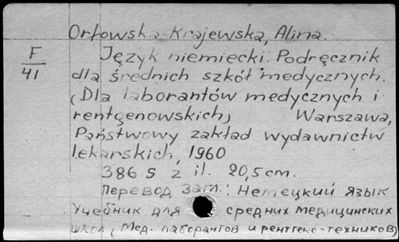 Orłowska-Krajewska, Alina.
F
41
Język niemiecki. Podręcznik
dla średnich szkół medycznych.
(Dla laborantów medycznych i
rentgenowskich) Warszawa,
Państwowy zakład wydawnictw
lekarskich, 1960
386 S z il. 20,5cm.
Перевод заг.: Немецкий язык
Учебник для средних медицинских
школ (Мед. лаборантов и рентгено-техников)